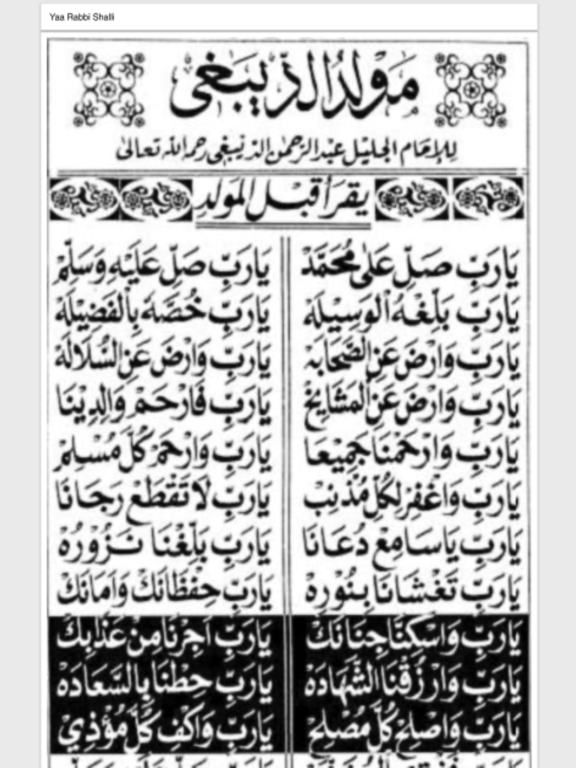 Yaa Rabbi Shalli
مَوْلِدُ الدِّيبَغِي
للإمام الجليل عبد الرحمن الديبغي رحمه الله تعالى
يقرأ قبل المولد
يَارَبِّ صَلِّ عَلَى مُحَمَّدْ يَارَبِّ صَلِّ عَلَيْهِ وَسَلِّمْ
يَارَبِّ بَلِّغْهُ الْوَسِيْلَهْ يَارَبِّ خُصَّهْ بِالْفَضِيْلَهْ
يَارَبِّ وَارْضَ عَنِ الصَّحَابَهْ يَارَبِّ وَارْضَ عَنِ السُّلَالَهْ
يَارَبِّ وَارْضَ عَنِ الْمَشَايِخْ يَارَبِّ فَارْحَمْ وَالِدِيْنَا
يَارَبِّ وَارْحَمْنَا جَمِيْعًا يَارَبِّ وَارْحَمْ كُلَّ مُسْلِمْ
يَارَبِّ وَاغْفِرْ لِكُلِّ مُذْنِبْ يَارَبِّ لَا تَقْطَعْ رَجَانَا
يَارَبِّ يَا سَامِعْ دُعَانَا يَارَبِّ بَلِّغْنَا نَزُوْرُهْ
يَارَبِّ تَغْشَانَا بِنُوْرِهْ يَارَبِّ حِفْظَانَكْ وَأَمَانَكْ
يَارَبِّ وَاسْكِنَّا جِنَانَكْ يَارَبِّ أَجِرْنَا مِنْ عَذَابِكْ
يَارَبِّ وَارْزُقْنَا الشَّهَادَهْ يَارَبِّ حِطْنَا بِالسَّعَادَهْ
يَارَبِّ وَاصْلِحْ كُلَّ مُصْلِحْ يَارَبِّ وَاكْفِ كُلَّ مُؤْذِيْ